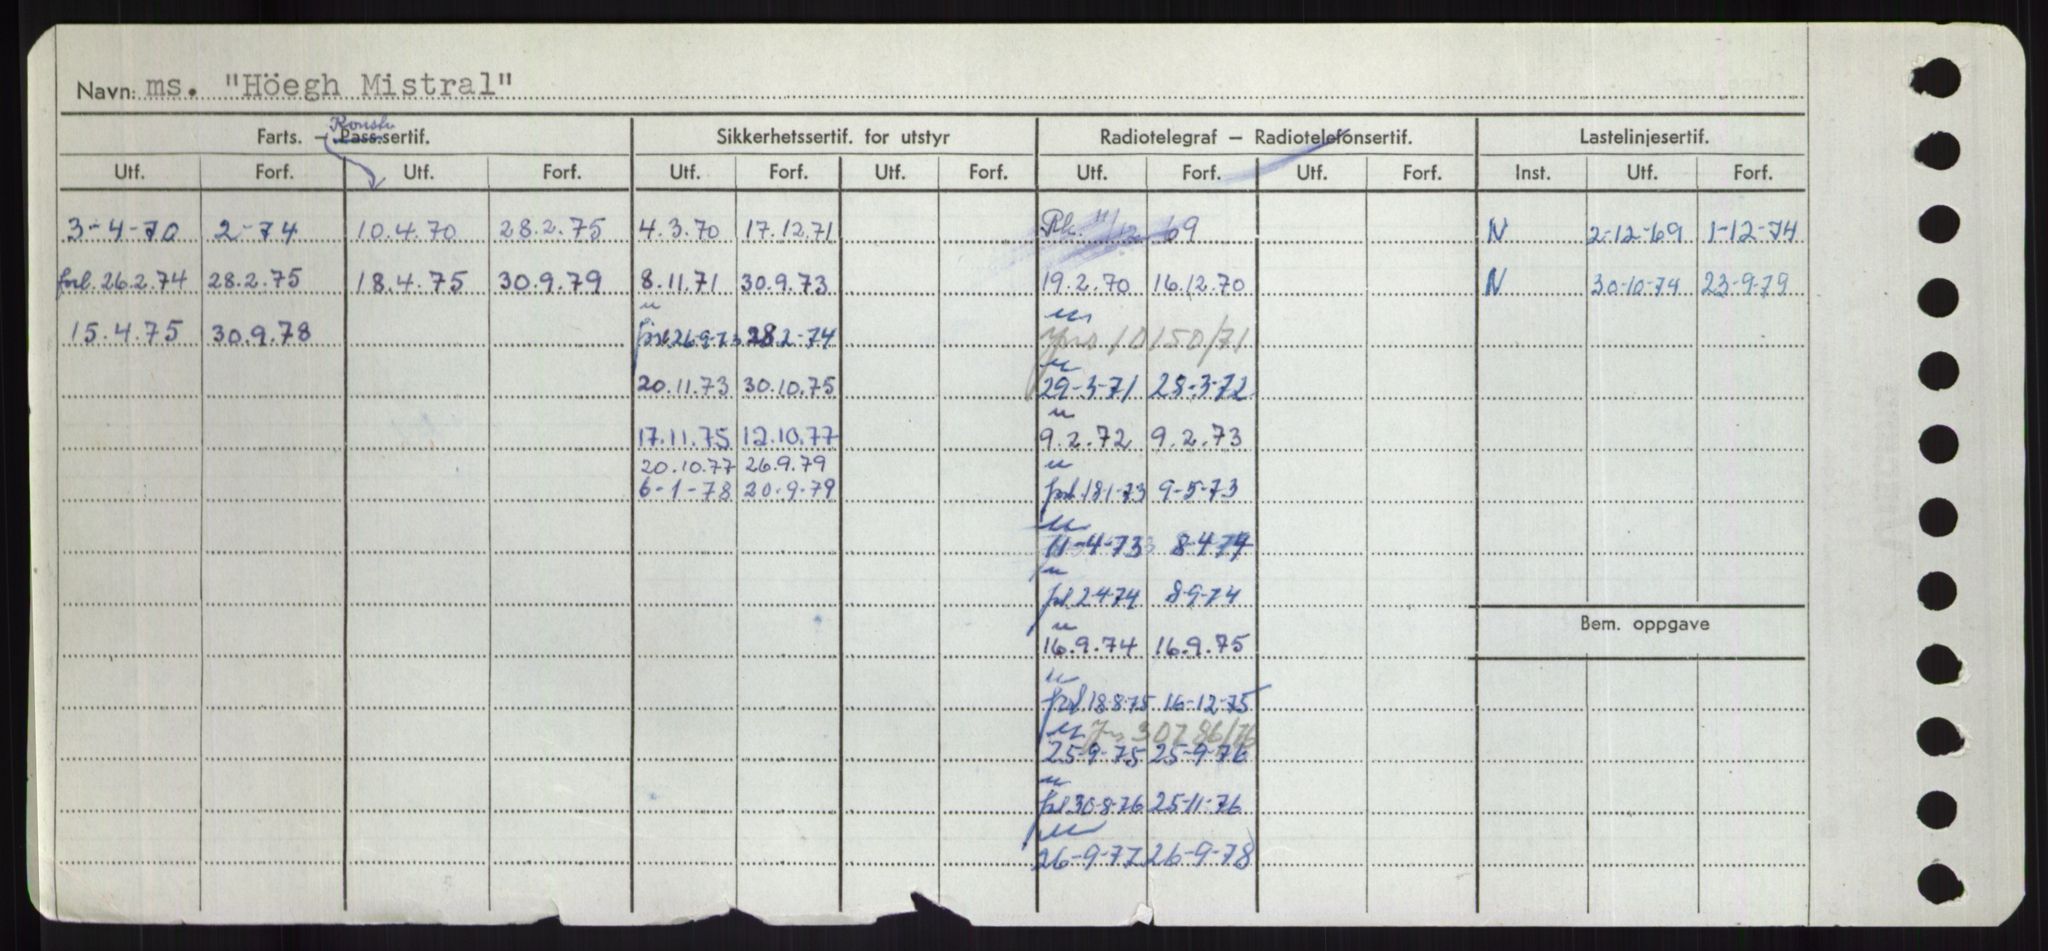 Navn: ms. "Höegh Mistral"
Konstr.
Farts. – Pass.sertif. Sikkerhetssertif. for utstyr Radiotelegraf – Radiotelefonsertif. Lastelinjesertif.
Utf. Forf. Utf. Forf. Utf. Forf. Utf. Forf. Utf. Forf. Utf. Forf. Inst. Utf. Forf.
3-4-70 2-74 10.4.70 28.2.75 4.3.70 17.12.71 Rk. 11/12 69 N 2-12-69 1-12-74
forl. 26.2.74 28.2.75 18.4.75 30.9.79 8.11.71 30.9.73 19.2.70 16.12.70 N 30-10-74 23-9-79
15.4.75 30.9.78 forl. 26-9-73 28.2-74 10150/71
20.11.73 30.10.75 29-3-71 28-3-72
17.11.75 12.10.77 9.2.72 9.2.73
20.10.77 26.9.79
6-1-78 20-9-79 forl. 18-1-73 9-5-73
11-4-73 8-4-74
forl. 2-4-74 8-9-74
Bem. oppgave
16.9.74 16.9.75
forl. 18-8-75 16-12-75
30786/76
25-9-75 25-9-76
forl. 30-8-76 25-11-76
26-9-77 26-9-78